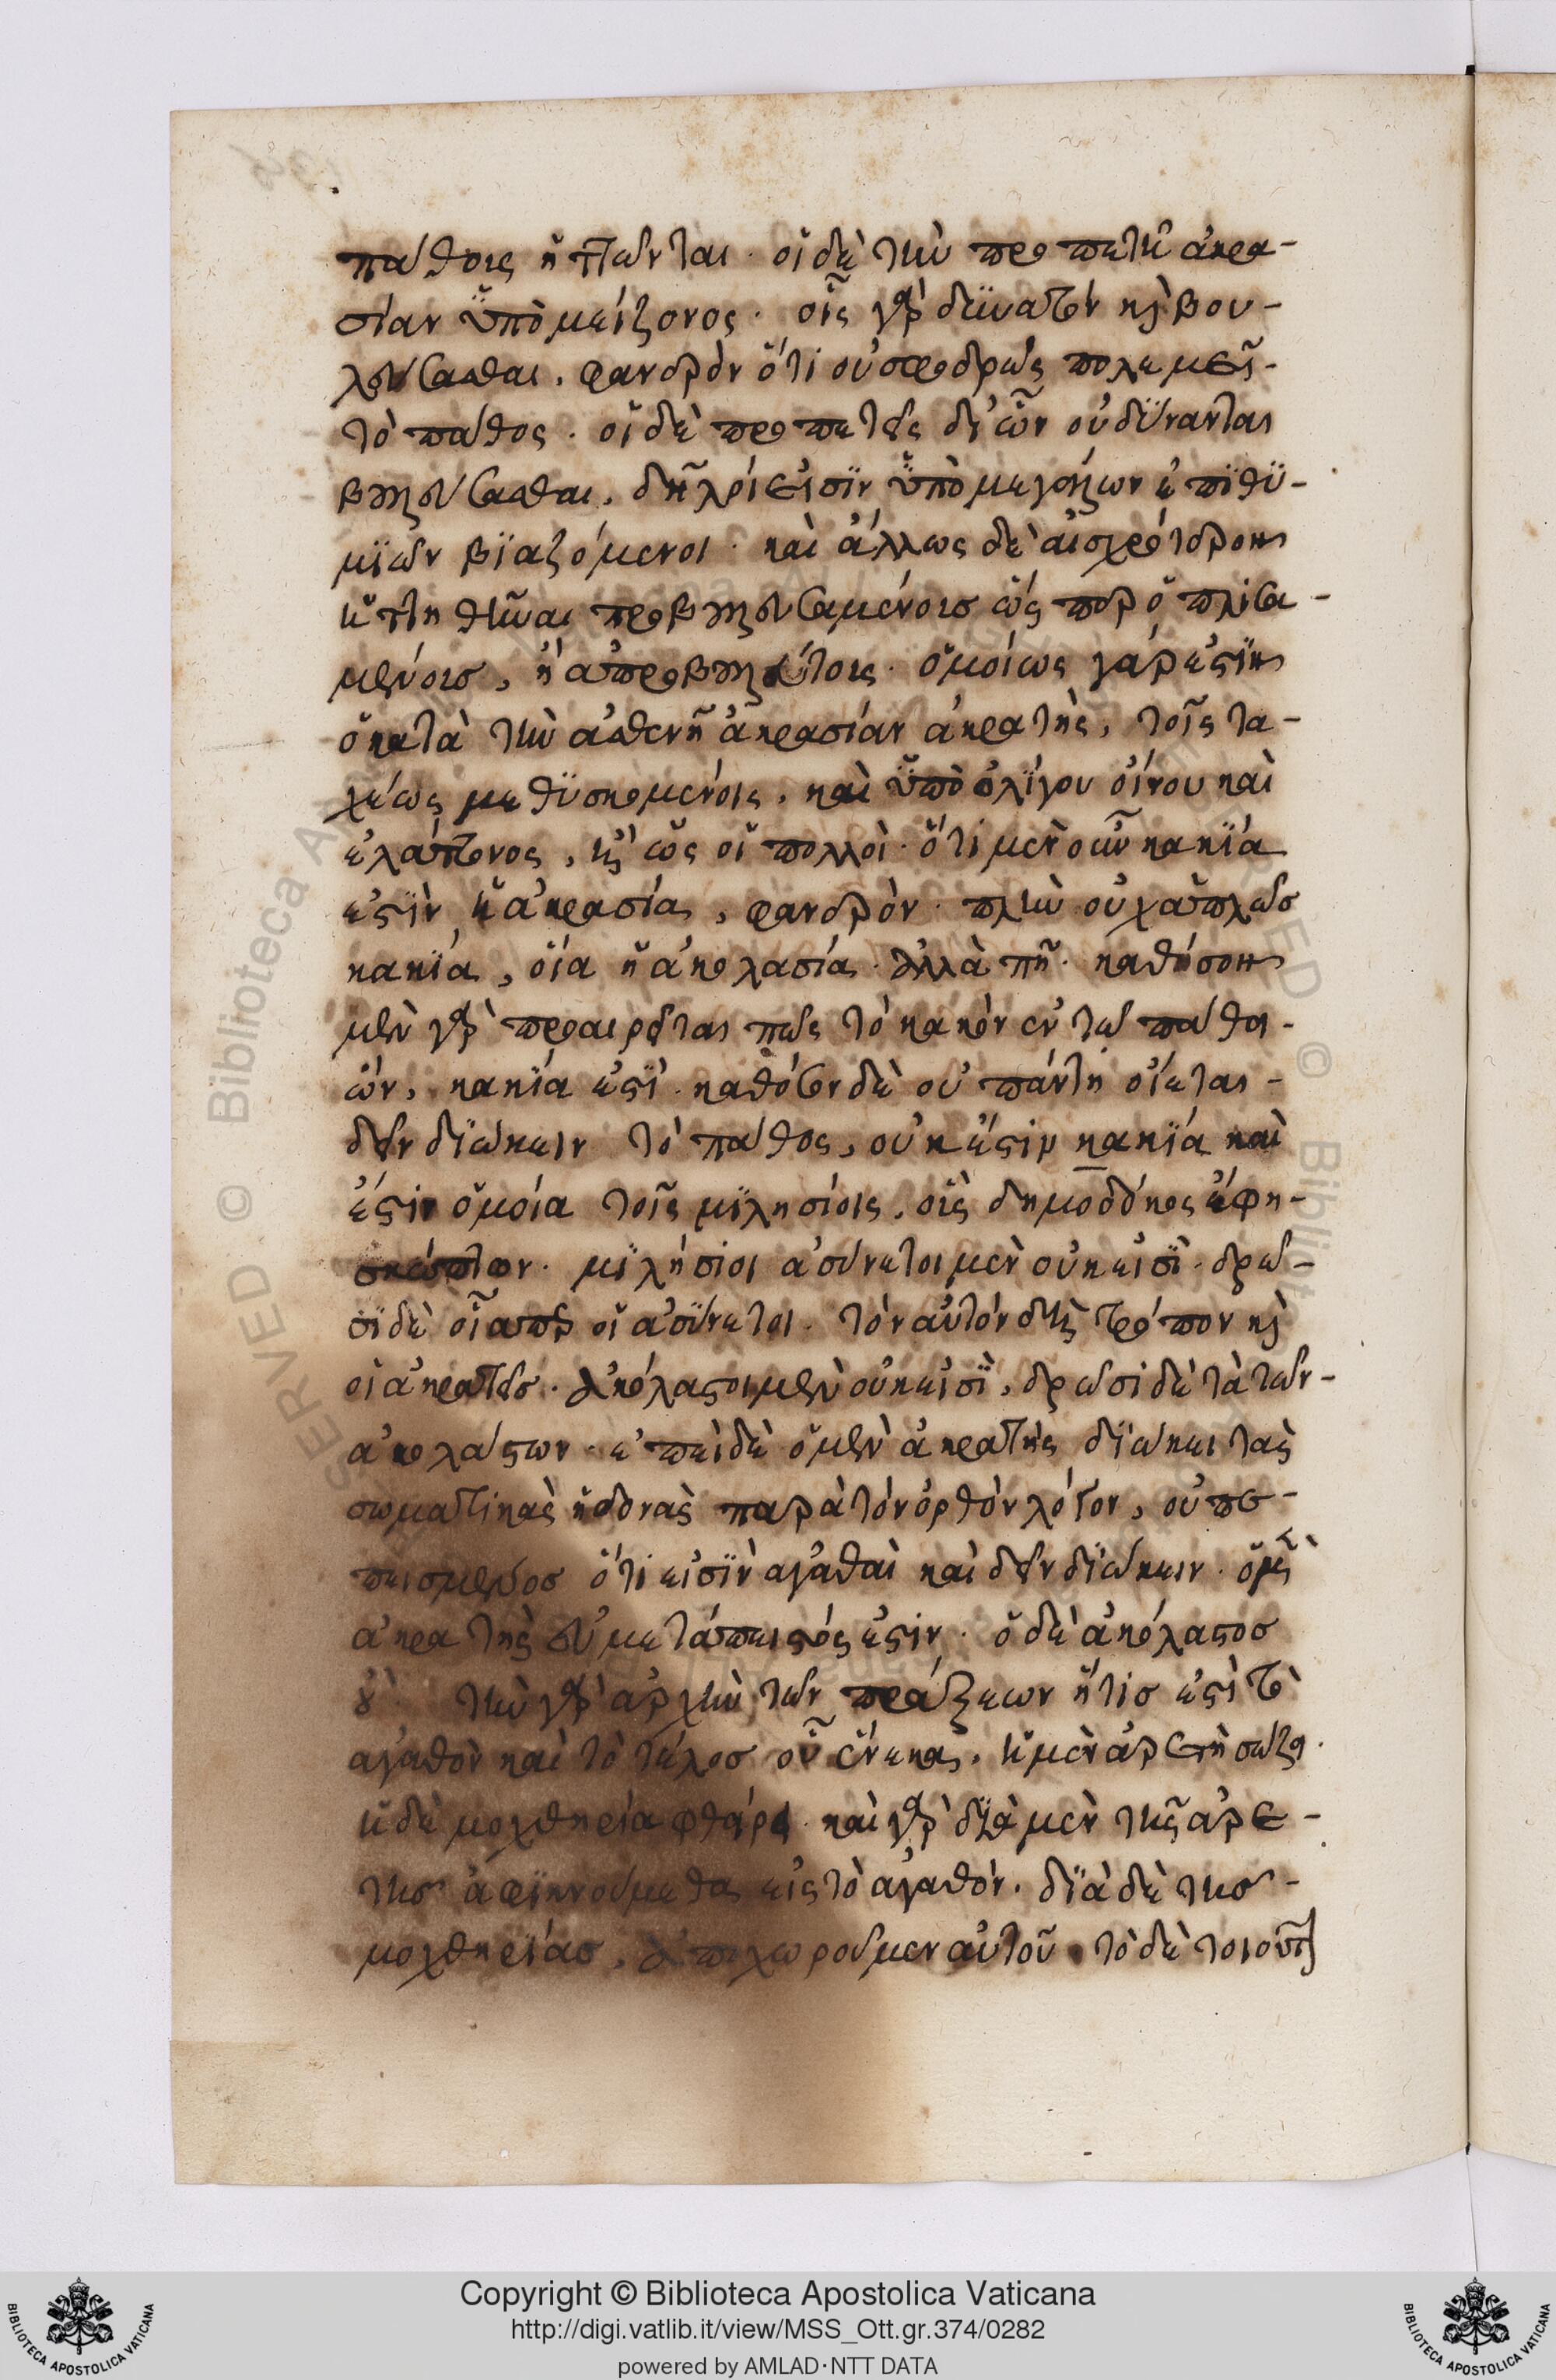 πάθους ἡττῶνται· οἱ δὲ τὴν προπετῆ ἀκρα-
σίαν ὑπὸ μείζονος· οἷς γὰρ δυνατὸν κ(αὶ) βου-
λεύσασθαι, φανερὸν ὅτι οὐ σφοδρῶς πολεμεῖ-
τὸ πάθος· οἱ δὲ προπετεῖς δι' ὧν οὐ δύνανται
βουλεύσασθαι, δῆλοί εἰσϊν ὑπὸ μεγάλων ἐπϊθϋ-
μϊῶν βϊαζόμενοι· καὶ ἄλλως δὲ αἰσχρότερον
ἡττηθῆναι προβουλευσαμένοισ ὥσπερ ὁπλισα-
μένοισ, ἢ ἀπροβουλεύτοις· ὁμοίως γάρ ἐστϊν
ὁ κατὰ τὴν ἀσθενῆ ἀκρασίαν ἀκρατὴς, τοῖς τα-
χέως μεθϋσκομένοις, καὶ ὑπὸ ὀλίγου οἴνου καὶ
ἐλάττονος, ἢ ὡς οἱ πολλοί· ὅτι μὲν οὖν κακϊία
ἐστϊν ἡ ἀκρασία, φανερὸν· πλὴν οὐχ ἁπλῶσ
κακϊία, οἵα ἡ ἀκολασία· ἀλλὰ πῆ· καθόσον
μὲν γὰρ προαιρεῖται πῶς τὸ κακὸν ἐν τῷ πάθει-
ὤν, κακϊία ἐστϊ· καθόσον δὲ οὐ πάντη οἴεται-
δεῖν δϊώκειν τὸ πάθος, οὐκ ἔστιν κακϊία καὶ
ἔστιν ὁμοία τοῖς μϊλησίοις, οἷς δημοδόκος ἔφη-
σκώπτων· μϊλήσιοι ἀσύνετοι μὲν οὐκ εἰσϊ· δρῶ-
σϊ δὲ οἷάπερ οἱ ἀσύνετοι· τὸν αὐτὸν δὴ τρόπον κ(αὶ)
οἱ ἀκρατεῖσ· ἀκόλαστοι μὲν οὐκ εἰσϊ, δρῶσι δὲ τὰ τῶν-
ἀκολάστων· ἐπεὶ δὲ ὁ μὲν ἀκρατὴς δϊώκει τὰς
σωματικὰς ἡδονὰς παρὰ τὸν ὀρθὸν λόγον, οὐ πε-
πεισμένοσ ὅτι εἰσϊν ἀγαθαὶ καὶ δεῖν δϊώκειν· ὁ μὲν
ἀκρατὴς εὐμετάπειστός ἐστιν· ὁ δὲ ἀκόλαστοσ
οὔ· τὴν γὰρ ἀρχὴν τῶν πράξεων ἥτισ ἐστὶ τὸ
ἀγαθὸν καὶ τὸ τέλοσ οὗ ἕνεκα, ἡ μὲν ἀρετὴ σώζει·
ἡ δὲ μοχθηρία φθείρει· καὶ γὰρ δϊὰ μὲν τῆς ἀρε-
τῆσ ἀφικνούμεθα εἰς τὸ ἀγαθόν· δϊὰ δὲ τῆσ-
μοχθηρίασ, ἀποχωροῦμεν αὐτοῦ· τὸ δὲ τοιοῦτ(ον)
Copyright © Biblioteca Apostolica Vaticana
http://digi.vatlib.it/view/MSS_Ott.gr.374/0282
powered by AMLAD·NTT DATA